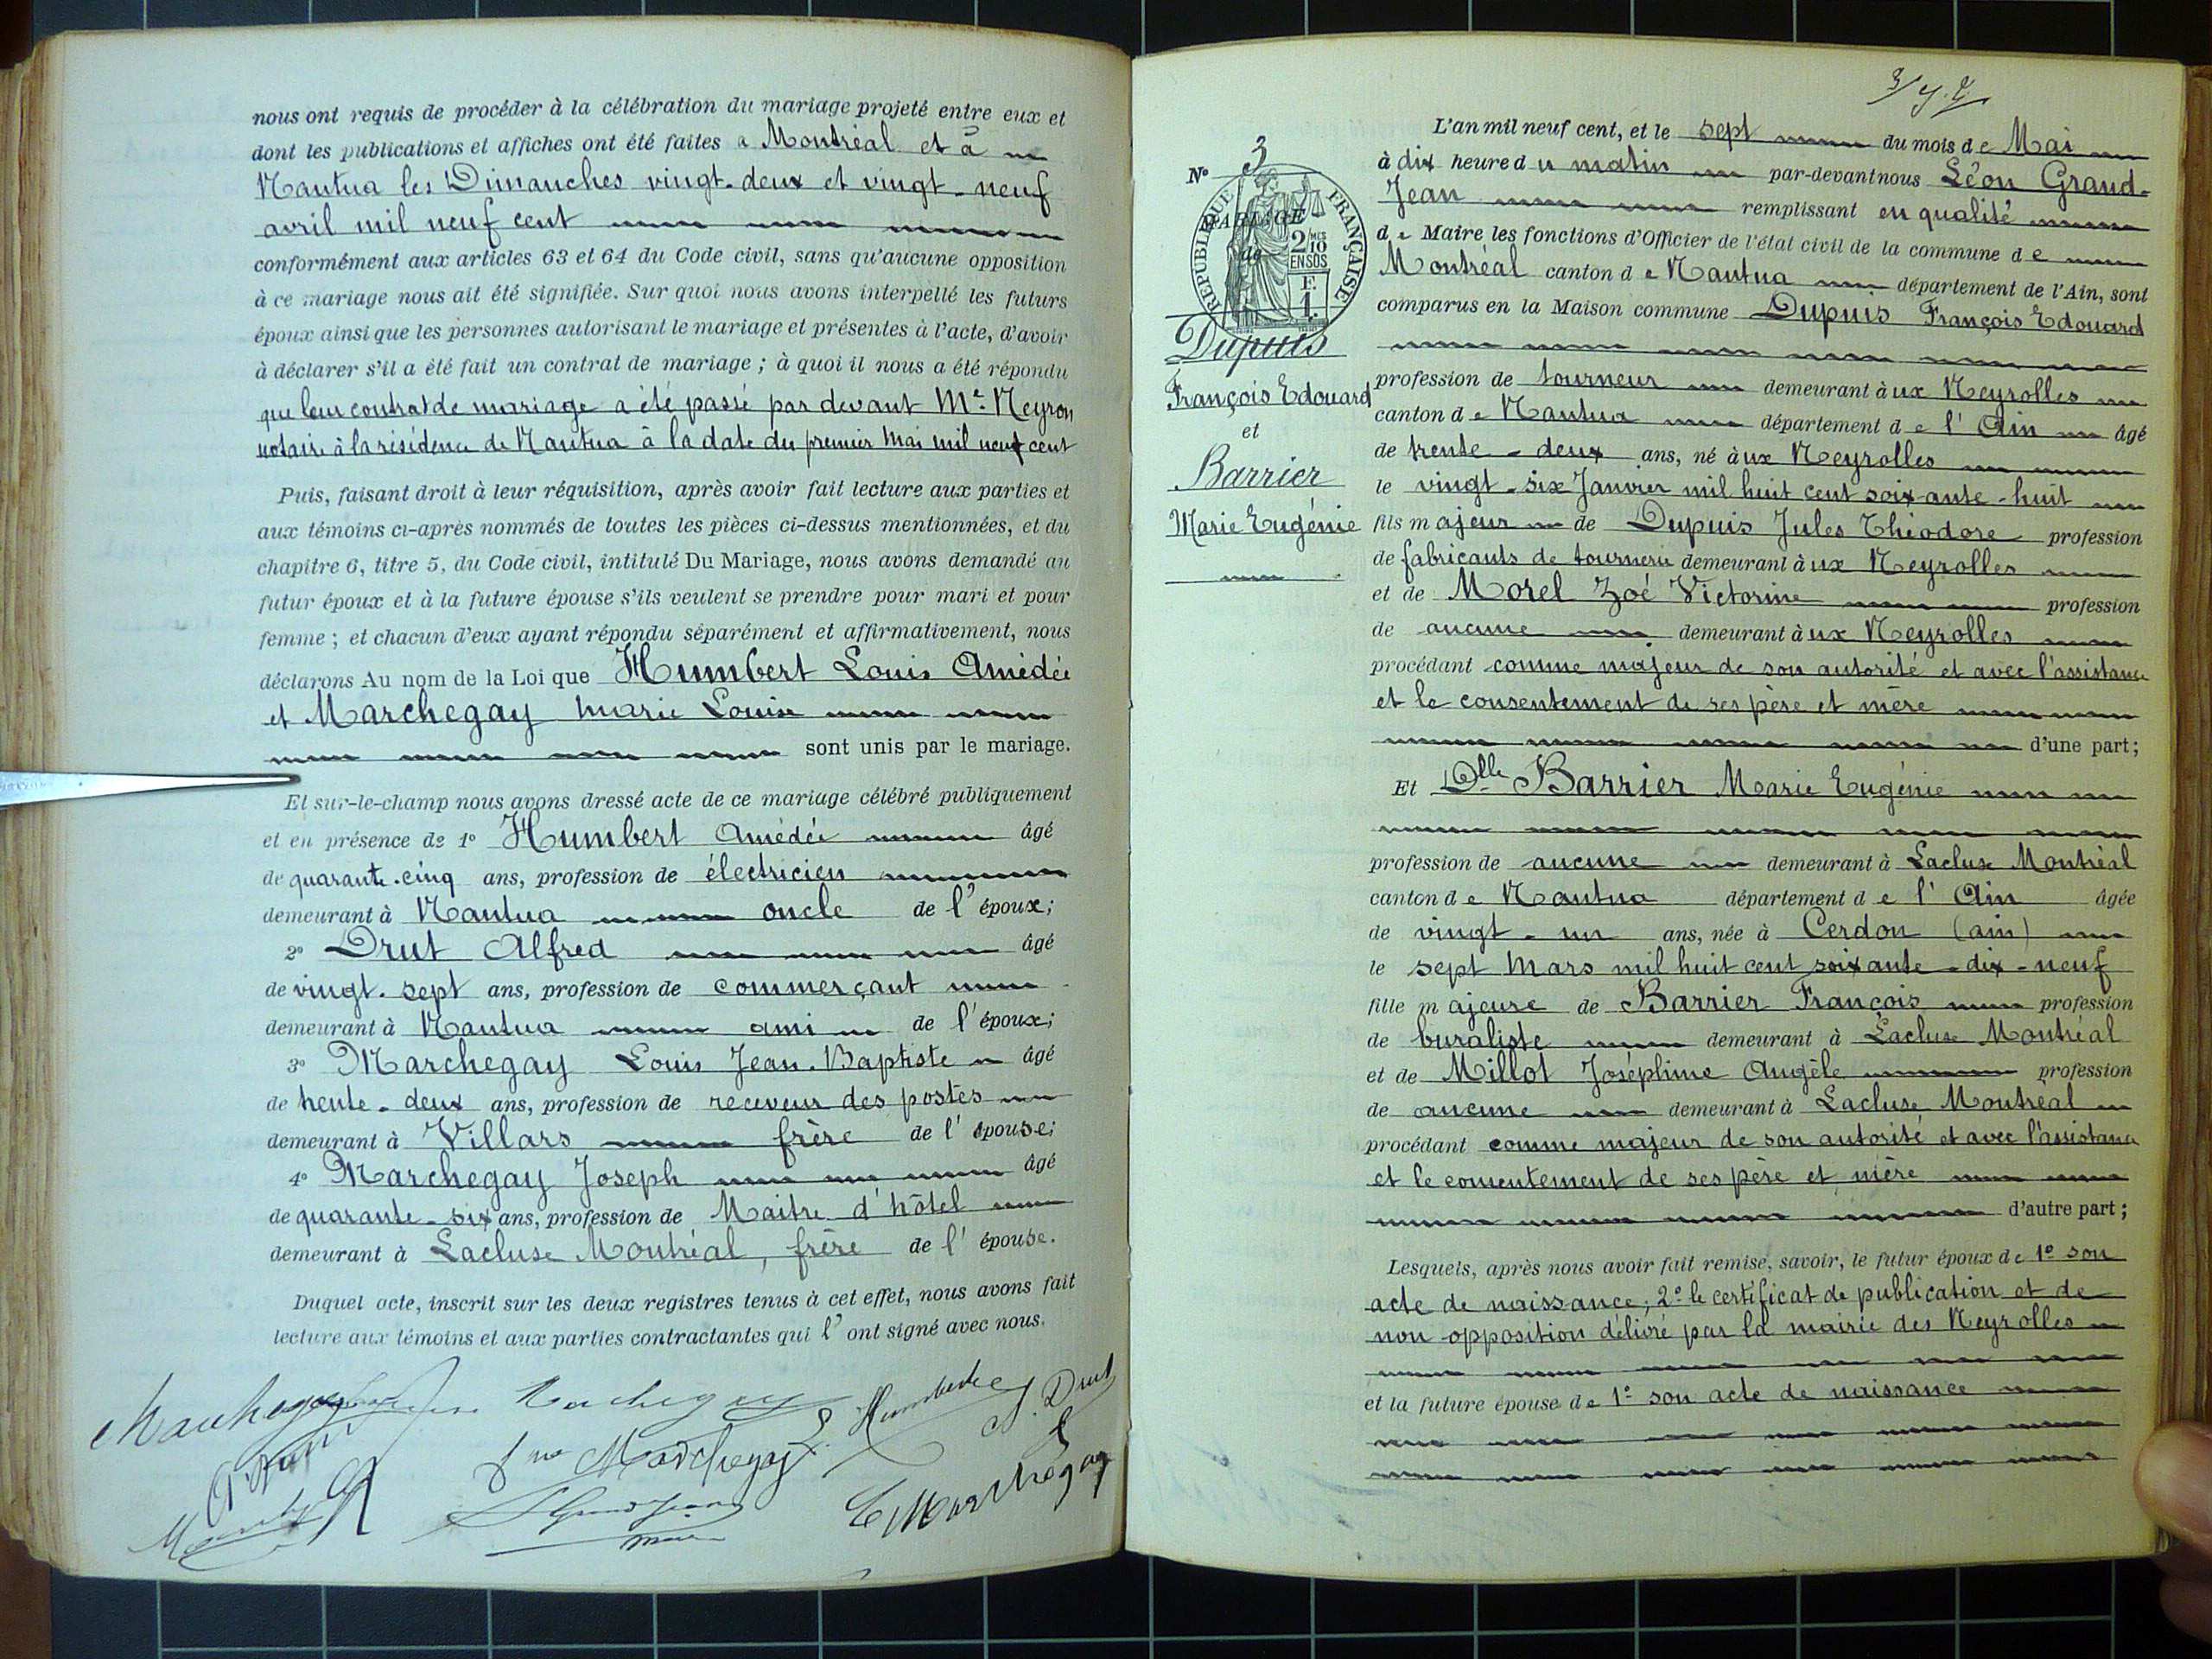 nous ont requis de procéder à la célébration du mariage projeté entre eux et
dont les publications et affiches ont été faites à Montréal et à
Nantua les Dimanches vingt-deux et vingt-neuf
avril mil neuf cent
conformément aux articles 63 et 64 du Code civil, sans qu'aucune opposition
à ce mariage nous ait été signifiée. Sur quoi nous avons interpellé les futurs
époux ainsi que les personnes autorisant le mariage et présentes à l'acte, d'avoir
à déclarer s'il a été fait un contrat de mariage ; à quoi il nous a été répondu
que leur contrat de mariage a été passé par devant Me. Neyron
notaire à la résidence de Nantua à la date du premier Mai mil neuf cent
Puis, faisant droit à leur réquisition, après avoir fait lecture aux parties et
aux témoins ci-après nommés de toutes les pièces ci-dessus mentionnées, et du
chapitre 6, titre 5, du Code civil, intitulé Du Mariage, nous avons demandé au
futur époux et à la future épouse s'ils veulent se prendre pour mari et pour
femme ; et chacun d'eux ayant répondu séparément et affirmativement, nous
déclarons Au nom de la Loi que Humbert Louis Amédée
et Marchegay Marie Louise
sont unis par le mariage.
Et sur-le-champ nous avons dressé acte de ce mariage célébré publiquement
et en présence de 1° Humbert Amédée âgé
de quarante-cinq ans, profession de électricien
demeurant à Nantua oncle de l'époux;
2° Drut Alfred âgé
de vingt-sept ans, profession de commerçant
demeurant à Nantua ami de l'époux;
3° Marchegay Louis Jean-Baptiste âgé
de trente-deux ans, profession de receveur des postes
demeurant à Villars frère de l'épouse;
4° Marchegay Joseph âgé
de quarante-six ans, profession de Maitre d'hôtel
demeurant à Lacluse Montréal, frère de l'épouse.
Duquel acte, inscrit sur les deux registres tenus à cet effet, nous avons fait
lecture aux témoins et aux parties contractantes qui l'ont signé avec nous.
Marchegay
L. Humbert
A. Drut
Marchegay
L Grandjean
maire
Marchegay
N° 3
MARIAGE
de
RÉPUBLIQUE FRANÇAISE
2 MES 10 EN SUS
F. 1.
Dupuis
François Edouard
et
Barrier
Marie Eugénie
L'an mil neuf cent, et le sept du mois de Mai
à dix heure du matin par-devant nous Léon Grand-
Jean remplissant en qualité
de Maire les fonctions d'Officier de l'état civil de la commune de
Montréal canton de Nantua département de l'Ain, sont
comparus en la Maison commune Dupuis François Edouard
profession de tourneur demeurant à ux Neyrolles
canton de Nantua département de l'Ain âgé
de trente-deux ans, né à ux Neyrolles
le vingt-six Janvier mil huit cent soixante-huit
fils majeur de Dupuis Jules Théodore profession
de fabricants de tournerie demeurant à ux Neyrolles
et de Morel Zoé Victorine profession
de aucune demeurant à ux Neyrolles
procédant comme majeur de son autorité et avec l'assistance
et le consentement de ses père et mère
d'une part;
Et Dlle Barrier Marie Eugénie
profession de aucune demeurant à Lacluse Montréal
canton de Nantua département de l'Ain âgée
de vingt-un ans, née à Cerdon (ain)
le sept Mars mil huit cent soixante-dix-neuf
fille majeure de Barrier François profession
de buraliste demeurant à Lacluse Montréal
et de Millot Joséphine Angèle profession
de aucune demeurant à Lacluse Montréal
procédant comme majeur de son autorité et avec l'assistance
et le consentement de ses père et mère
d'autre part;
Lesquels, après nous avoir fait remise, savoir, le futur époux de 1° son
acte de naissance; 2° le certificat de publication et de
non opposition délivré par la mairie des Neyrolles
et la future épouse de 1° son acte de naissance